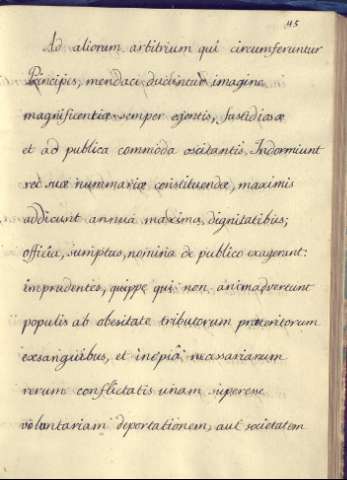 45
Ad aliorum arbitrium qui circumferuntur
Principes, mendaci ducuntur imagine
magnificentiæ semper egentis, fastidiosæ
et ad publica commoda oscitantis. Indormiunt
rei suæ nummariæ constituendæ, maximis
addicunt annua maxima dignitatibus;
officia, sumptus, nomina de publico exagerunt:
imprudentes, quippe qui non animadvertunt
populis ab obesitate tributorum præteritorum
exsanguibus, et inopiâ necessariarum
rerum conflictatis unam superesse
voluntariam deportationem, aut societatem